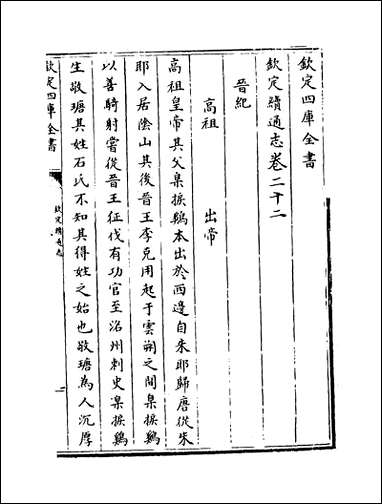 欽定四庫全書
欽定續通志卷二十二
晉紀
高祖　出帝
高祖皇帝其父臬捩鷄本出於西邊自朱耶歸唐從朱
耶入居陰山其後晉王李克用起于雲朔之間臬捩鷄
以善騎射嘗從晉王征伐有功官至洺州刺史臬捩鷄
生敬瑭其姓石氏不知其得姓之始也敬瑭為人沉厚
欽定四庫全書
欽定續通志
一